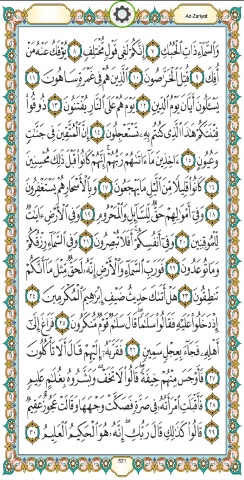 Az-Zariyat
وَالسَّمَاءِ ذَاتِ الْحُبُكِ ٧ إِنَّكُمْ لَفِي قَوْلٍ مُّخْتَلِفٍ ٨ يُؤْفَكُ عَنْهُ مَنْ
أُفِكَ ٩ قُتِلَ الْخَرَّاصُونَ ١٠ الَّذِينَ هُمْ فِي غَمْرَةٍ سَاهُونَ ١١
يَسْأَلُونَ أَيَّانَ يَوْمُ الدِّينِ ١٢ يَوْمَ هُمْ عَلَى النَّارِ يُفْتَنُونَ ١٣ ذُوقُوا
فِتْنَتَكُمْ هَٰذَا الَّذِي كُنتُم بِهِ تَسْتَعْجِلُونَ ١٤ إِنَّ الْمُتَّقِينَ فِي جَنَّاتٍ
وَعُيُونٍ ١٥ آخِذِينَ مَا آتَاهُمْ رَبُّهُمْ إِنَّهُمْ كَانُوا قَبْلَ ذَٰلِكَ مُحْسِنِينَ
١٦ كَانُوا قَلِيلًا مِّنَ اللَّيْلِ مَا يَهْجَعُونَ ١٧ وَبِالْأَسْحَارِ هُمْ يَسْتَغْفِرُونَ
١٨ وَفِي أَمْوَالِهِمْ حَقٌّ لِّلسَّائِلِ وَالْمَحْرُومِ ١٩ وَفِي الْأَرْضِ آيَاتٌ
لِّلْمُوقِنِينَ ٢٠ وَفِي أَنفُسِكُمْ أَفَلَا تُبْصِرُونَ ٢١ وَفِي السَّمَاءِ رِزْقُكُمْ
وَمَا تُوعَدُونَ ٢٢ فَوَرَبِّ السَّمَاءِ وَالْأَرْضِ إِنَّهُ لَحَقٌّ مِّثْلَ مَا أَنَّكُمْ
تَنطِقُونَ ٢٣ هَلْ أَتَاكَ حَدِيثُ ضَيْفِ إِبْرَاهِيمَ الْمُكْرَمِينَ ٢٤
إِذْ دَخَلُوا عَلَيْهِ فَقَالُوا سَلَامًا قَالَ سَلَامٌ قَوْمٌ مُّنكَرُونَ ٢٥ فَرَاغَ إِلَىٰ
أَهْلِهِ فَجَاءَ بِعِجْلٍ سَمِينٍ ٢٦ فَقَرَّبَهُ إِلَيْهِمْ قَالَ أَلَا تَأْكُلُونَ
٢٧ فَأَوْجَسَ مِنْهُمْ خِيفَةً قَالُوا لَا تَخَفْ وَبَشَّرُوهُ بِغُلَامٍ عَلِيمٍ
٢٨ فَأَقْبَلَتِ امْرَأَتُهُ فِي صَرَّةٍ فَصَكَّتْ وَجْهَهَا وَقَالَتْ عَجُوزٌ عَقِيمٌ
٢٩ قَالُوا كَذَٰلِكِ قَالَ رَبُّكِ إِنَّهُ هُوَ الْحَكِيمُ الْعَلِيمُ ٣٠
521